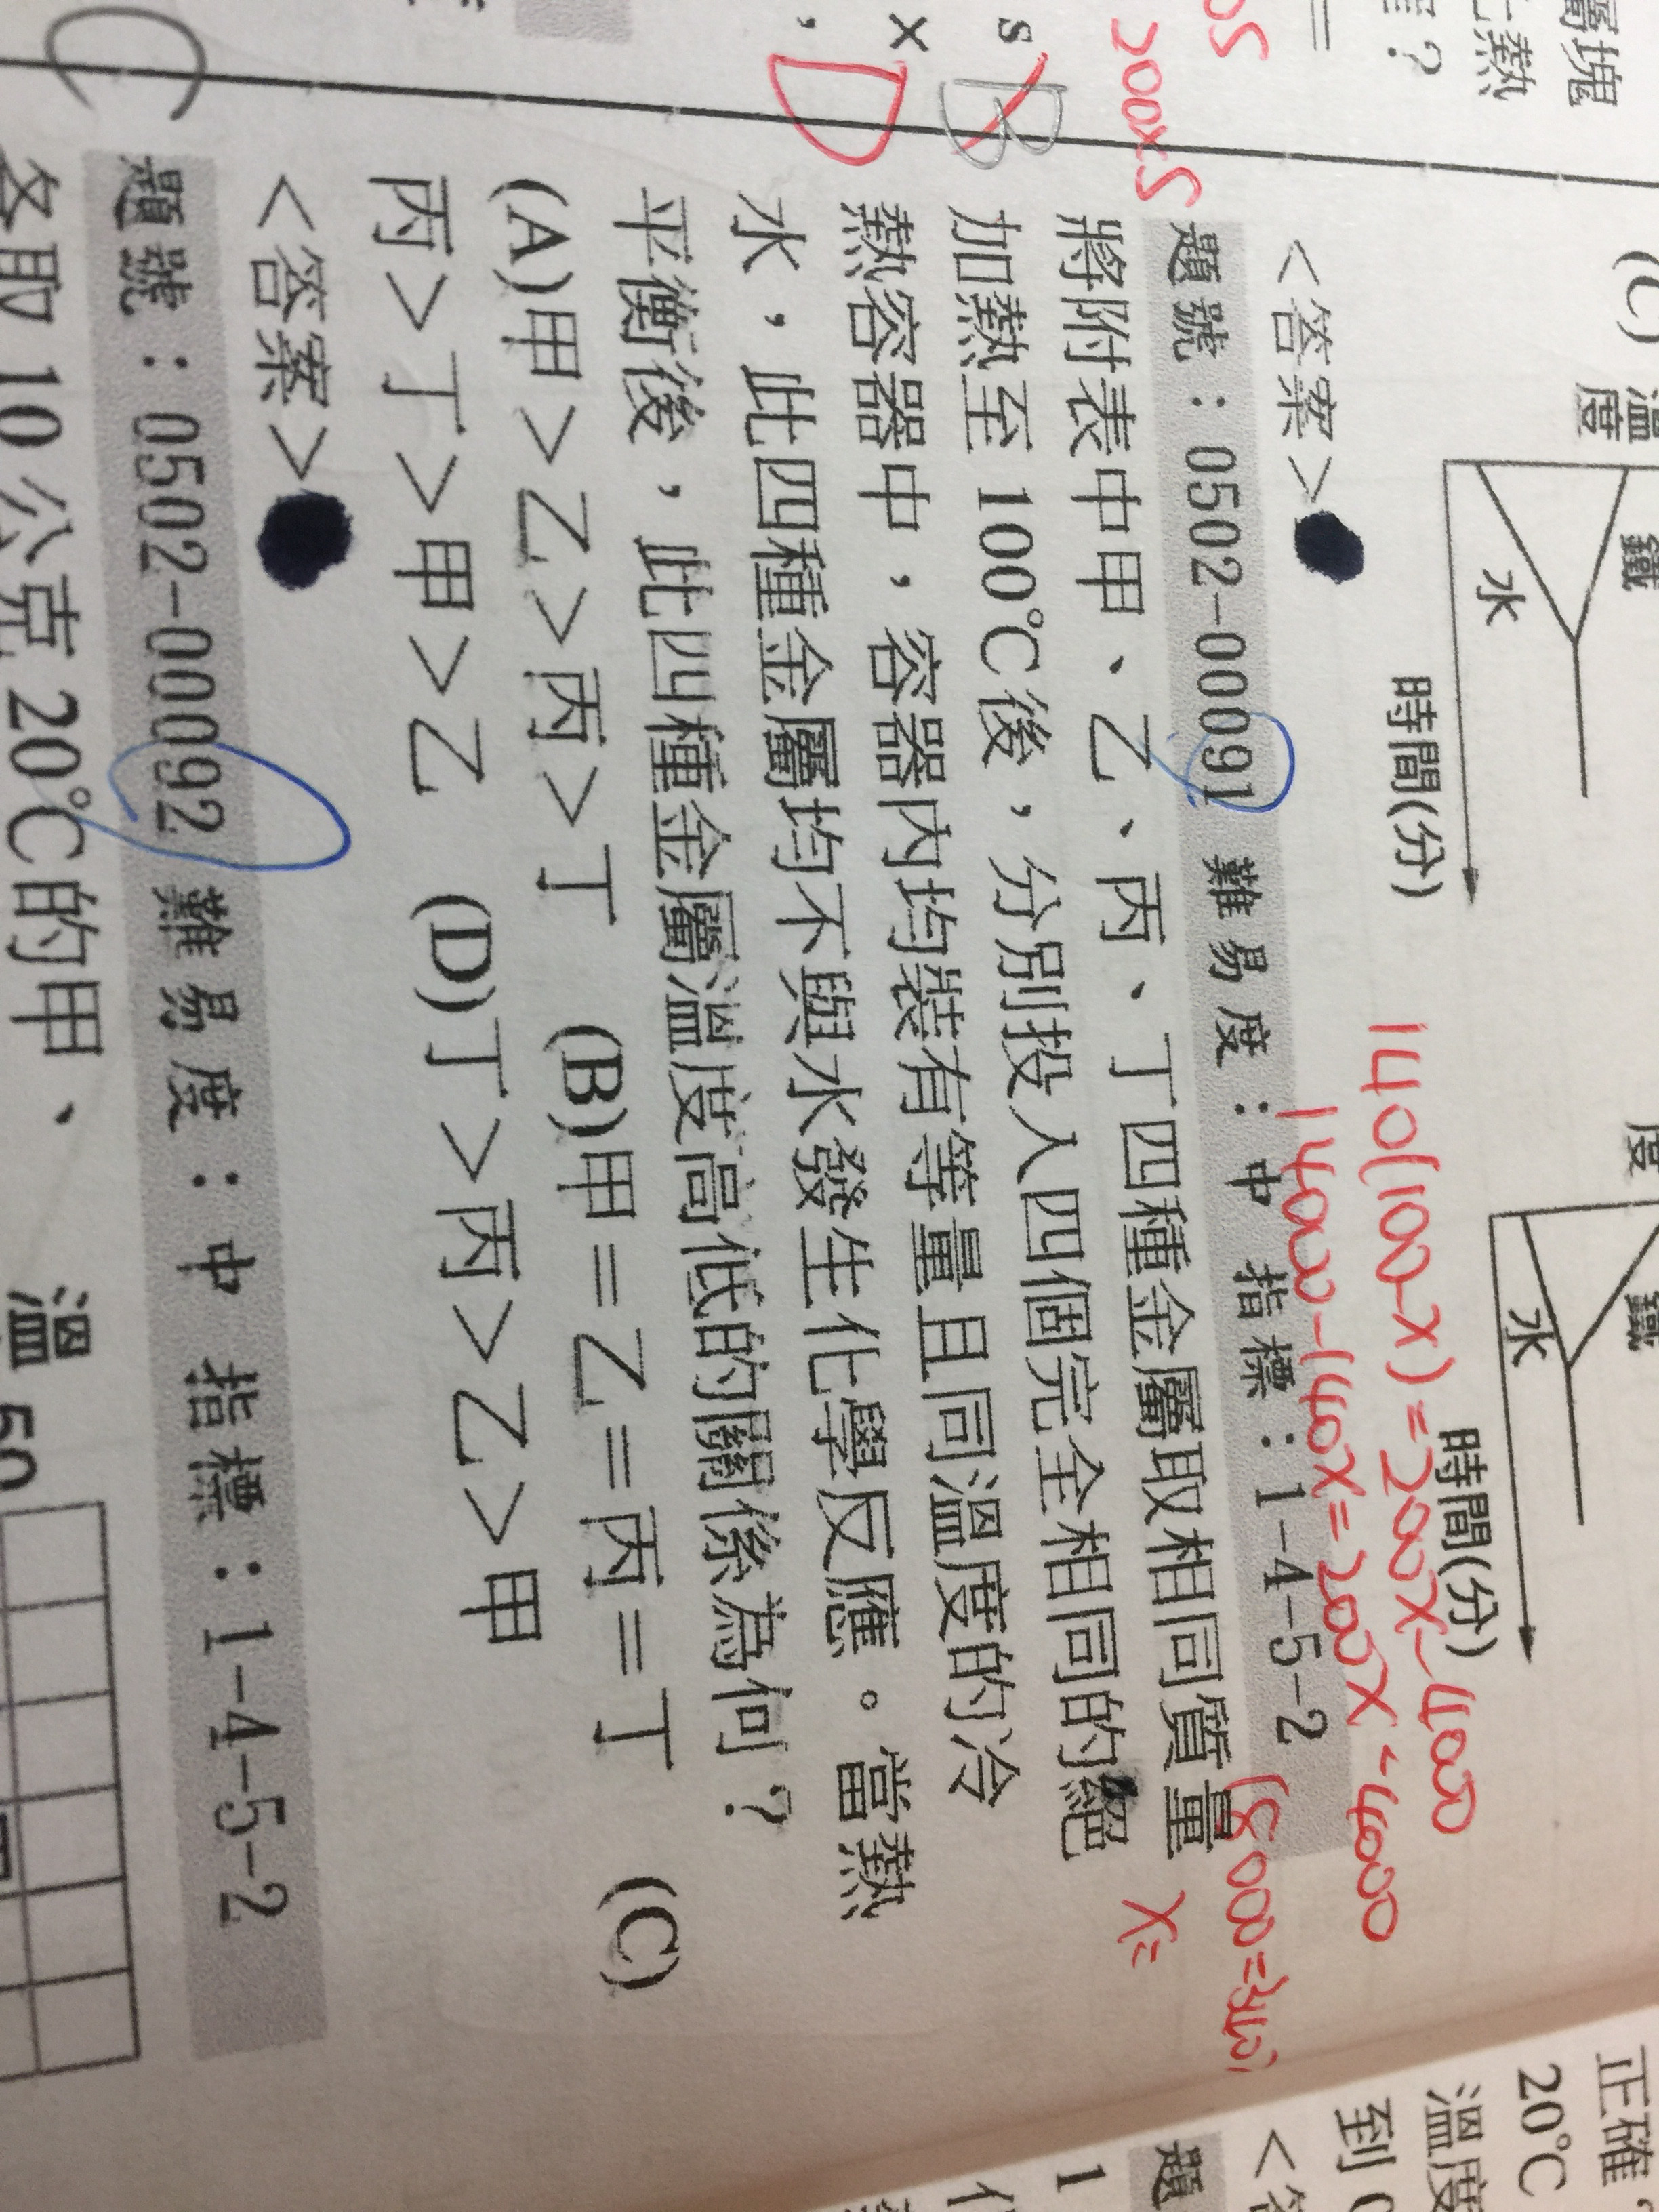 (C) 溫度
鐵
水
時間(分)
度
鐵
水
時間(分)
140(100-X)=200X-4000
14000-140X=200X-4000
18000=340
X=
<答案>
題號：0502-00091 難易度：中 指標：1-4-5-2
將附表中甲、乙、丙、丁四種金屬取相同質量
加熱至 100℃後，分別投入四個完全相同的絕
熱容器中，容器內均裝有等量且同溫度的冷
水，此四種金屬均不與水發生化學反應。當熱
平衡後，此四種金屬溫度高低的關係為何？
(A)甲＞乙＞丙＞丁 (B)甲＝乙＝丙＝丁 (C)
丙＞丁＞甲＞乙 (D)丁＞丙＞乙＞甲
<答案>
題號：0502-00092 難易度：中 指標：1-4-5-2
各取 10 公克 20℃的甲、
溫 50
屬塊
熱
？
=
s
x
B
D
C
200x5
正確
20℃
溫度
到
<答
題
1